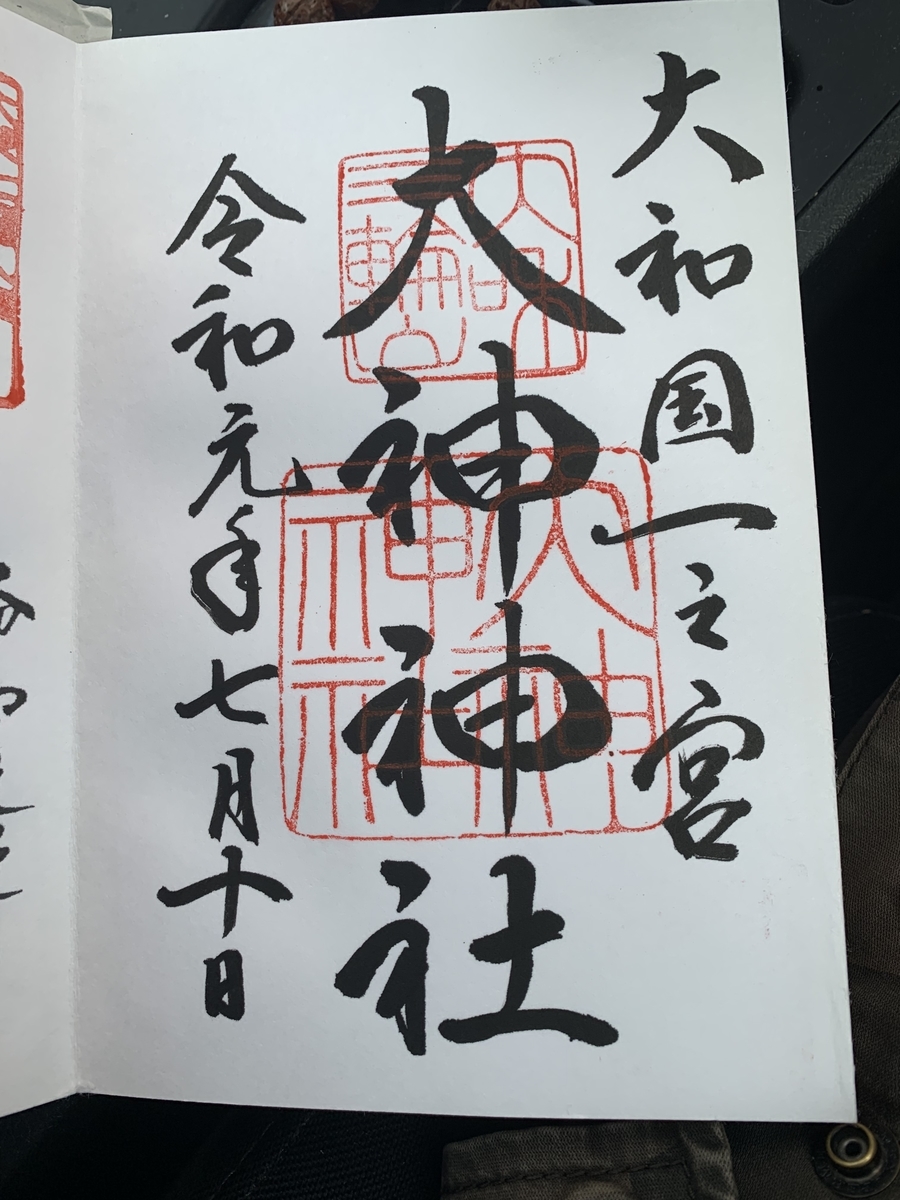 大和国一之宮
大神神社
令和元年七月十日
大神
神社